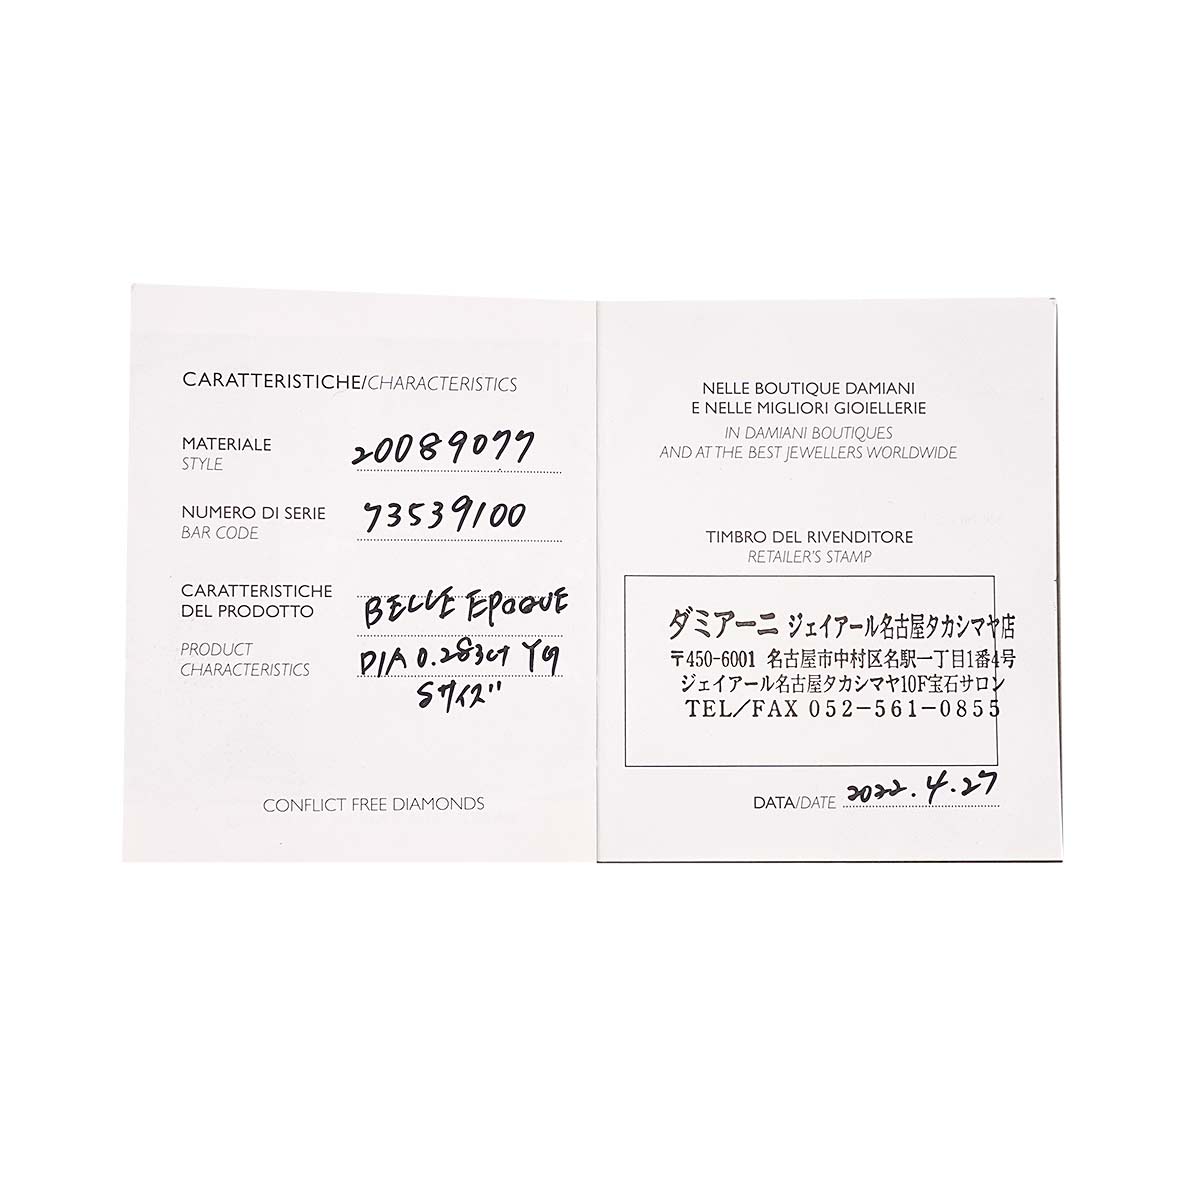 CARATTERISTICHE/CHARACTERISTICS
MATERIALE 20089077
STYLE
NUMERO DI SERIE 73539100
BAR CODE
CARATTERISTICHE
DEL PRODOTTO BELLE EPOQUE
PRODUCT DIA 0.283ct YG
CHARACTERISTICS
Sサイズ
CONFLICT FREE DIAMONDS
NELLE BOUTIQUE DAMIANI
E NELLE MIGLIORI GIOIELLERIE
IN DAMIANI BOUTIQUES
AND AT THE BEST JEWELLERS WORLDWIDE
TIMBRO DEL RIVENDITORE
RETAILER'S STAMP
ダミアーニ ジェイアール名古屋タカシマヤ店
〒450-6001 名古屋市中村区名駅一丁目1番4号
ジェイアール名古屋タカシマヤ10F宝石サロン
TEL/FAX 052-561-0855
DATA/DATE 2022.4.27